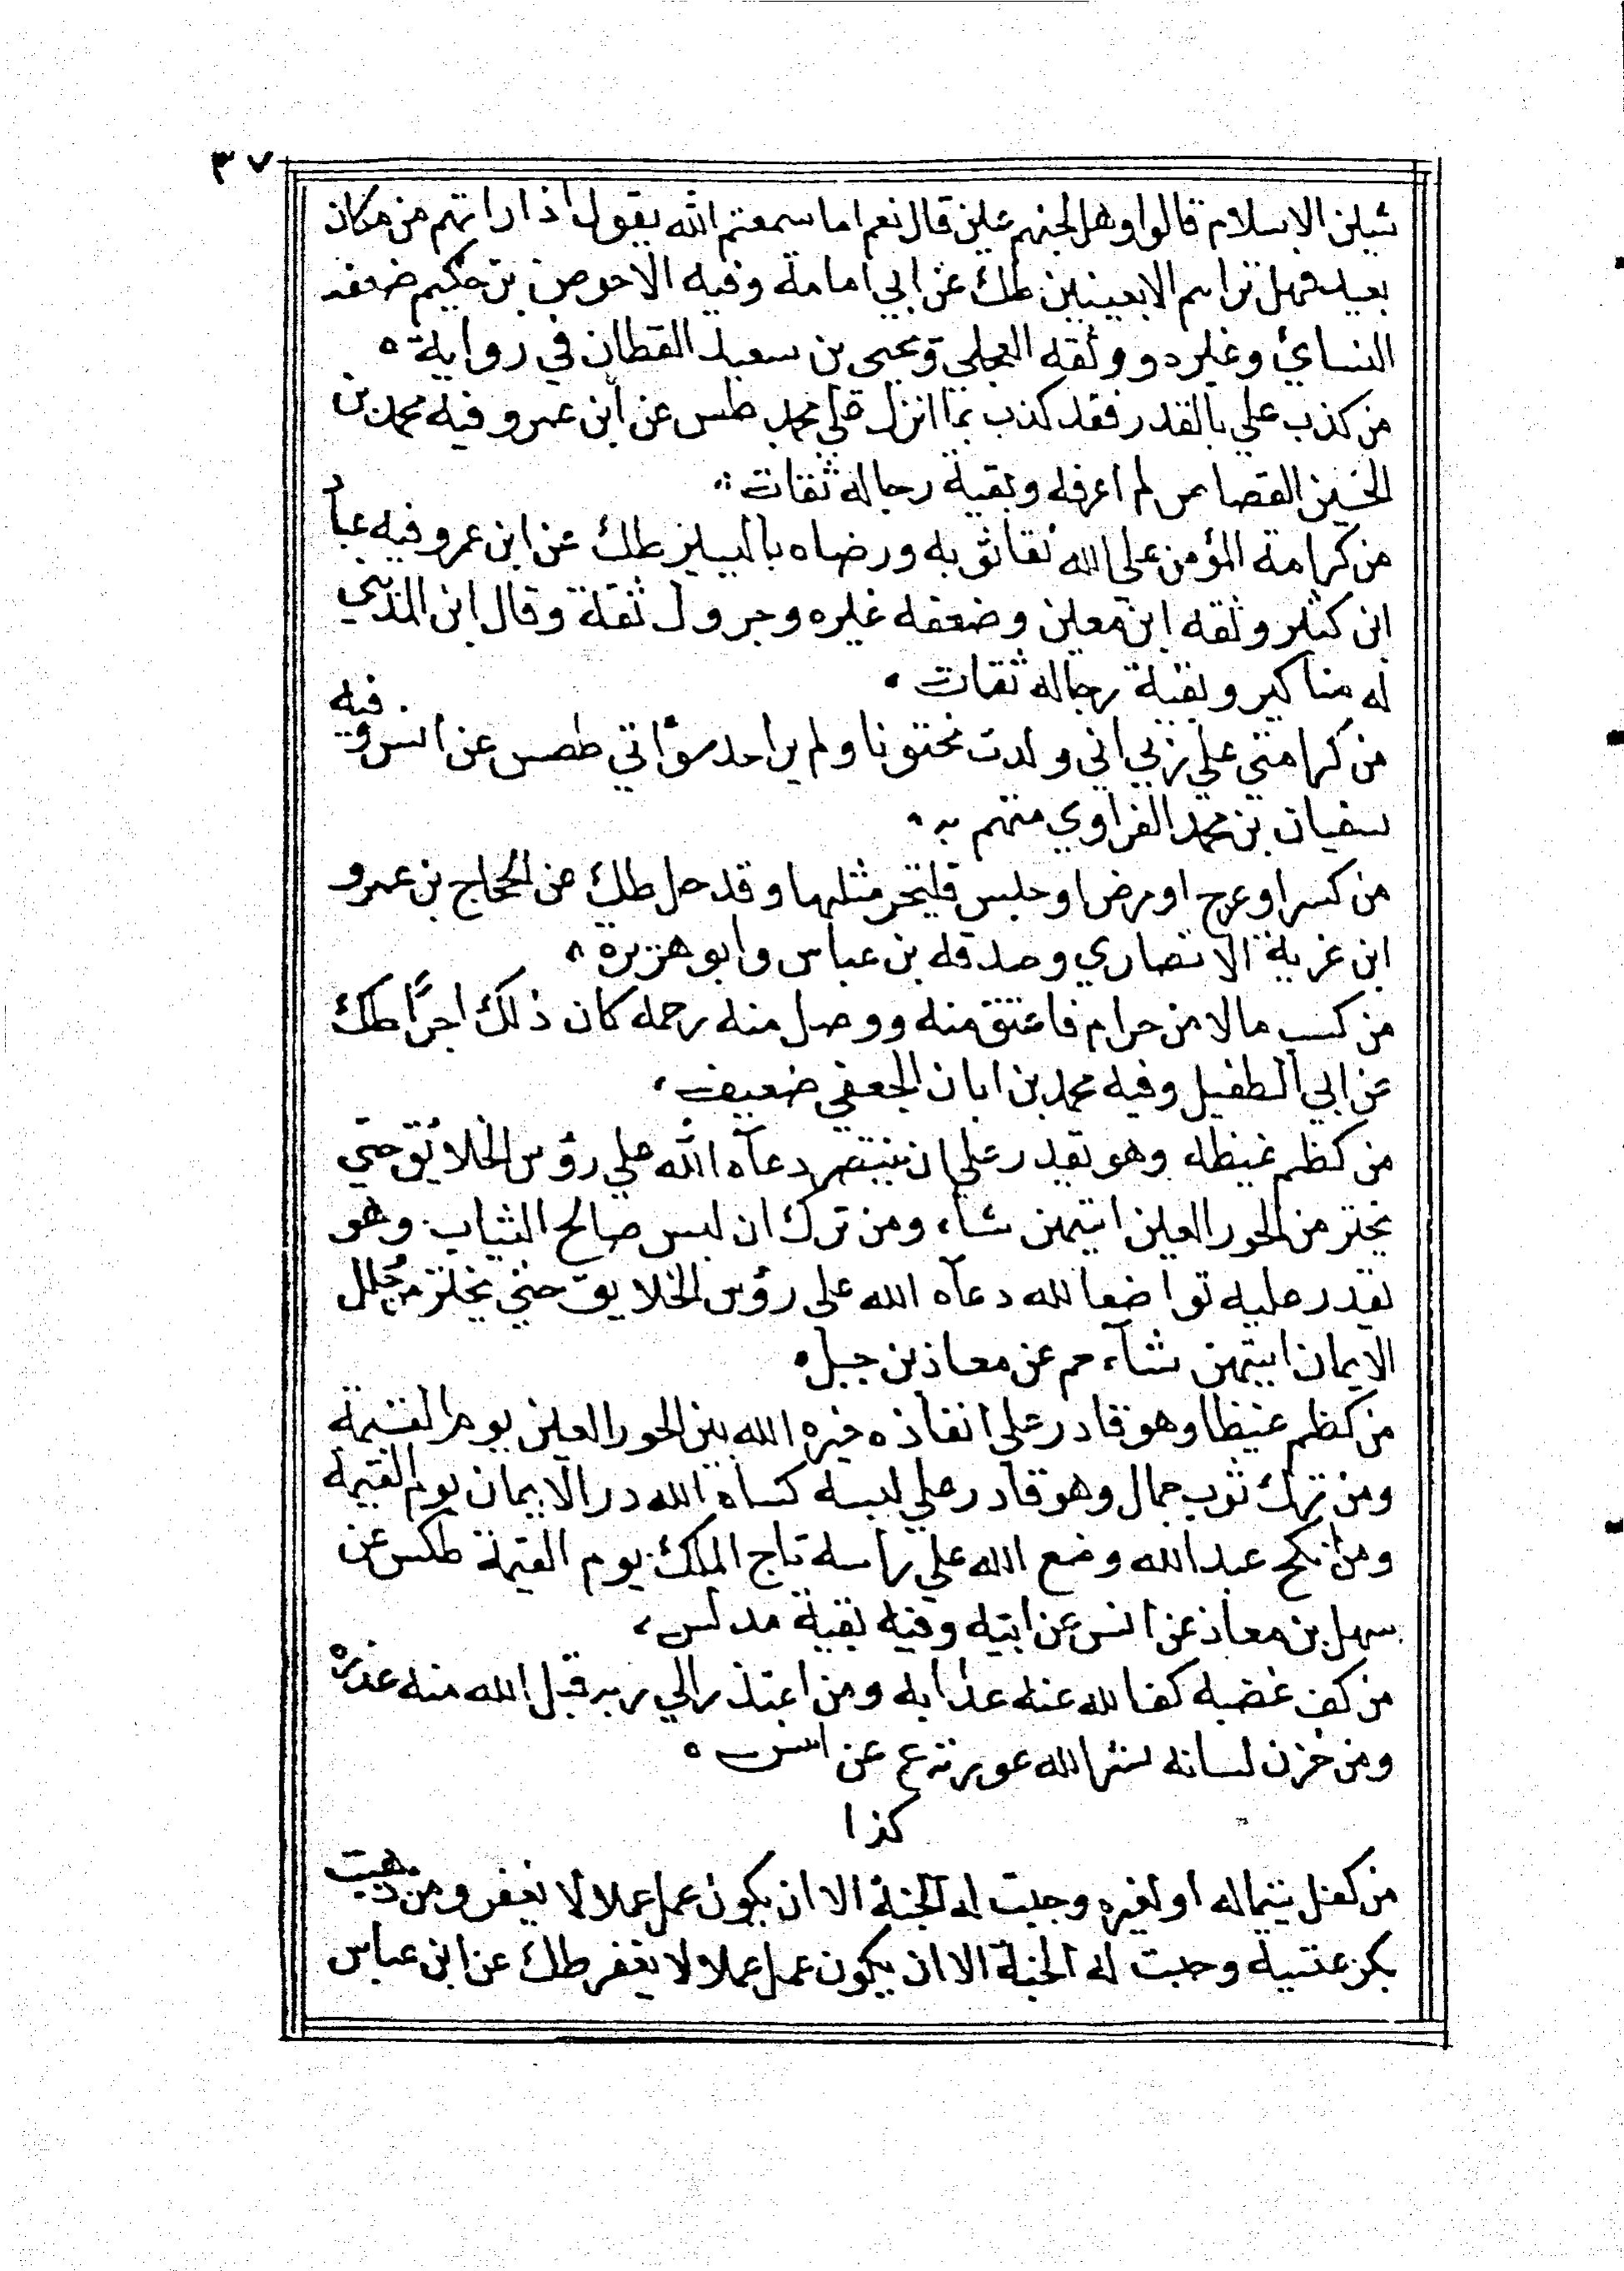 ٣٧
شين الاسلام قالوا وهل لجهنم عين قال نعم اما سمعتم الله يقول اذا راتهم من مكان
بعيد فهل تراهم الا بعينين طك عن ابي امامة وفيه الاحوص بن حكيم ضعفه
النسائ وغيره ووثقه العجلي ويحيى بن سعيد القطان في رواية
من كذب علي بالقدر فقد كذب بما انزل علي محمد طس عن ابن عمر وفيه محمد بن
الحسين القصاص لم اعرفه وبقية رجاله ثقات
من كرامة المؤمن علي الله نقا ثوبه ورضاه باليسير طك عن ابن عمر وفيه عباد
ابن كثير وثقه ابن معين وضعفه غيره وجرول ثقة وقال ابن المديني
له مناكير وبقية رجاله ثقات
من كرامتي علي ربي اني ولدت مختونا ولم ير احد سؤاتي طصس عن انس وفيه
فيه
سفيان بن محمد الفزاوي متهم به
من كسر او عرج او مرض او حبس فليتحر مثلها وقد حل طك عن الحجاج بن عمرو
ابن غزية الانصاري وصدقه بن عباس وابو هريرة
من كسب مالا من حرام فاعتق منه ووصل منه رحمه كان ذلك اجرًا طك
عن ابي الطفيل وفيه محمد بن ابان الجعفي ضعيف
من كظم غيظه وهو يقدر علي ان ينتصر دعآه الله علي رؤس الخلائق حتي
يختر من الحور العين ايتهن شاء ومن ترك ان لبس صالح الثياب وهو
يقدر عليه تواضعا لله دعآه الله على رؤس الخلايق حتي يختر من حلل
الايمان ايتهن شآء حم عن معاذ بن جبل
من كظم غيظا وهو قادر علي انفاذه خيره الله بين الحور العين يوم القيمة
ومن ترك ثوب جمال وهو قادر علي لبسه كساه الله در الايمان يوم القيمة
ومن انكح عبد الله وضع الله علي راسه تاج الملك يوم القيمة طكس عن
سهل بن معاذ عن انس عن ابيه وفيه بقية مدلس
من كف غضبه كفا لله عنه عذابه ومن اعتذر الي ربه قبل الله منه عذره
ومن خزن لسانه ستر الله عورته ع عن انس
كذا
من كفل يتيما له او لغيره وجبت له الجنة الا ان يكون عمل عملا لا يغفر ومن ذهبت
بكر عتيه وجبت له الجنة الا ان يكون عمل عملا لا يغفر طك عن ابن عباس